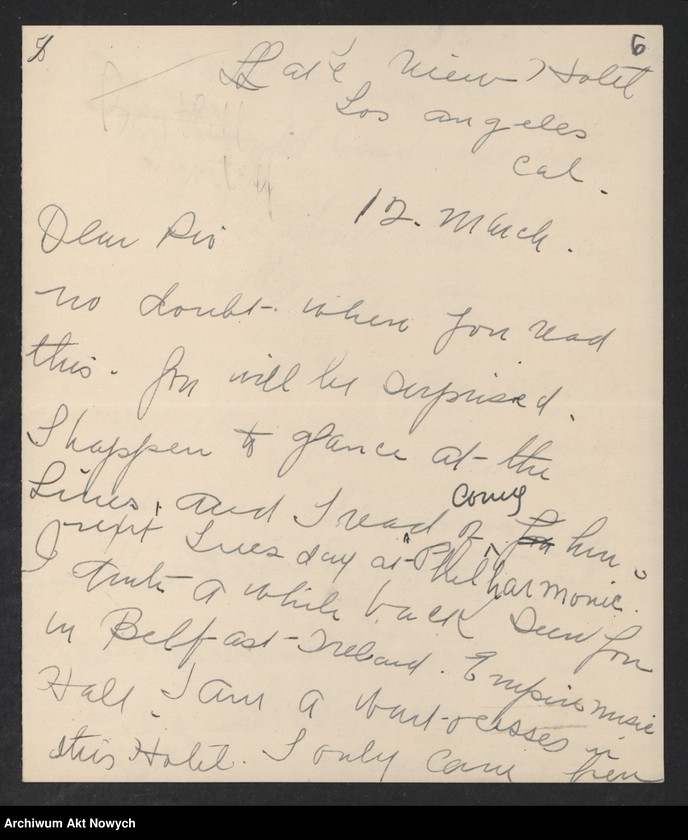 6
Lake View Hotel
Los angeles
Cal.
12. March.
Dear Sir
no doubt. when you read
this. you will be surprised.
I happen to glance at the
Times, and I read of you coming here
next Tuesday at Philharmonic.
I a while back seen you
in Belfast-Ireland. Empire music
Hall. I am a in
this Hotel. I only came here
Archiwum Akt Nowych